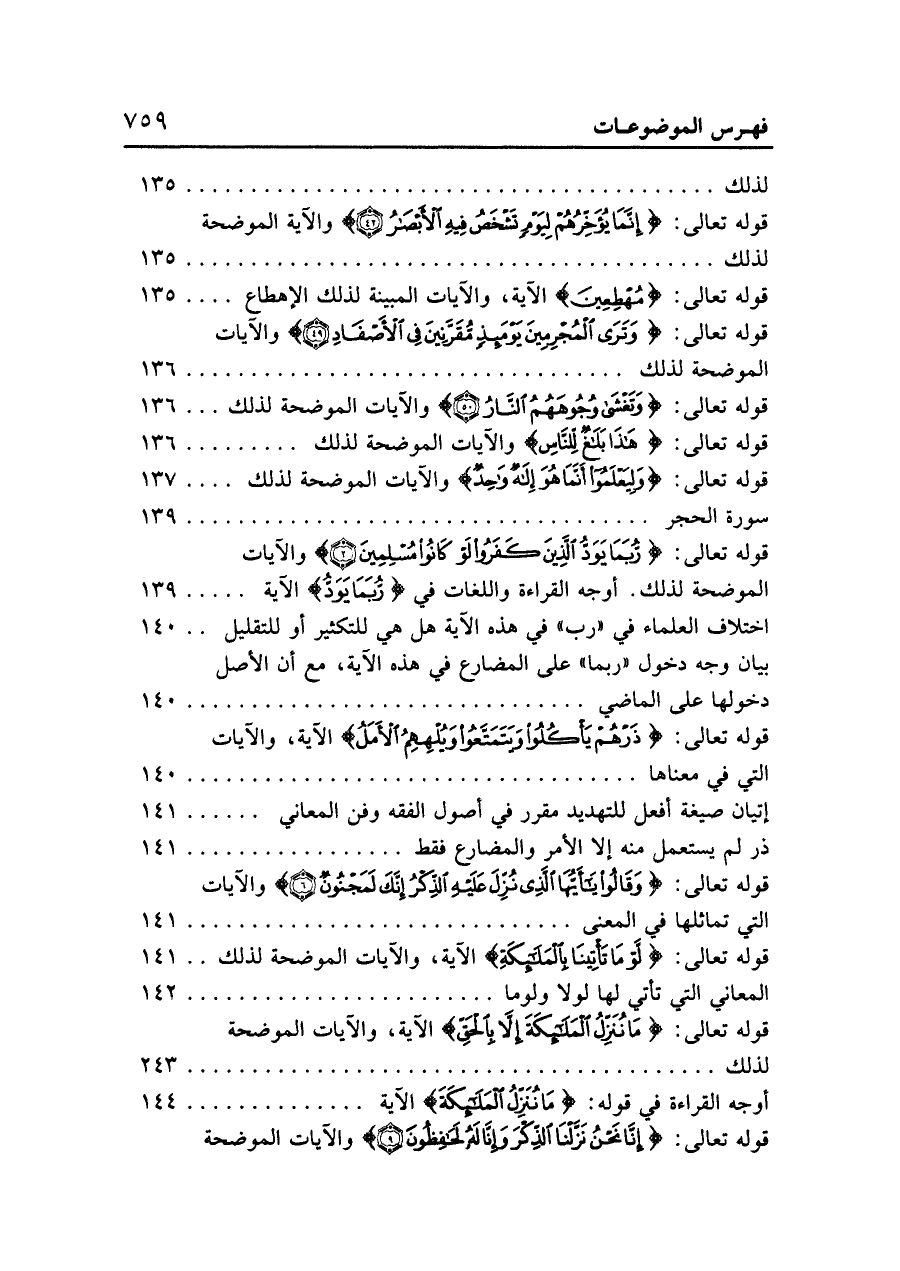 فهرس الموضوعات ٧٥٩
لذلك ........................................ ١٣٥
قوله تعالى: ﴿ إِنَّمَا يُؤَخِّرُهُمْ لِيَوْمٍ تَشْخَصُ فِيهِ ٱلْأَبْصَٰرُ ٤٢﴾ والآية الموضحة
لذلك ........................................ ١٣٥
قوله تعالى: ﴿مُهْطِعِينَ﴾ الآية، والآيات المبينة لذلك الإهطاع .... ١٣٥
قوله تعالى: ﴿ وَتَرَى ٱلْمُجْرِمِينَ يَوْمَئِذٍ مُّقَرَّنِينَ فِى ٱلْأَصْفَادِ ٤٩﴾ والآيات
الموضحة لذلك .................................. ١٣٦
قوله تعالى: ﴿وَتَغْشَىٰ وُجُوهَهُمُ ٱلنَّارُ ٥٠﴾ والآيات الموضحة لذلك ... ١٣٦
قوله تعالى: ﴿ هَٰذَا بَلَٰغٌ لِّلنَّاسِ﴾ والآيات الموضحة لذلك ......... ١٣٦
قوله تعالى: ﴿وَلِيَعْلَمُوٓا۟ أَنَّمَا هُوَ إِلَٰهٌ وَٰحِدٌ﴾ والآيات الموضحة لذلك .... ١٣٧
سورة الحجر .................................... ١٣٩
قوله تعالى: ﴿ رُّبَمَا يَوَدُّ ٱلَّذِينَ كَفَرُوا۟ لَوْ كَانُوا۟ مُسْلِمِينَ ٢﴾ والآيات
الموضحة لذلك. أوجه القراءة واللغات في ﴿ رُّبَمَا يَوَدُّ﴾ الآية ..... ١٣٩
اختلاف العلماء في «رب» في هذه الآية هل هي للتكثير أو للتقليل .. ١٤٠
بيان وجه دخول «ربما» على المضارع في هذه الآية، مع أن الأصل
دخولها على الماضي ............................... ١٤٠
قوله تعالى: ﴿ ذَرْهُمْ يَأْكُلُوا۟ وَيَتَمَتَّعُوا۟ وَيُلْهِهِمُ ٱلْأَمَلُ﴾ الآية، والآيات
التي في معناها ................................... ١٤٠
إتيان صيغة أفعل للتهديد مقرر في أصول الفقه وفن المعاني ...... ١٤١
ذر لم يستعمل منه إلا الأمر والمضارع فقط ................. ١٤١
قوله تعالى: ﴿ وَقَالُوا۟ يَٰٓأَيُّهَا ٱلَّذِى نُزِّلَ عَلَيْهِ ٱلذِّكْرُ إِنَّكَ لَمَجْنُونٌ ٦﴾ والآيات
التي تماثلها في المعنى .............................. ١٤١
قوله تعالى: ﴿ لَّوْ مَا تَأْتِينَا بِٱلْمَلَٰٓئِكَةِ﴾ الآية، والآيات الموضحة لذلك .. ١٤١
المعاني التي تأتي لها لولا ولوما ........................ ١٤٢
قوله تعالى: ﴿ مَا نُنَزِّلُ ٱلْمَلَٰٓئِكَةَ إِلَّا بِٱلْحَقِّ﴾ الآية، والآيات الموضحة
لذلك ........................................ ٢٤٣
أوجه القراءة في قوله: ﴿ مَا نُنَزِّلُ ٱلْمَلَٰٓئِكَةَ﴾ الآية .............. ١٤٤
قوله تعالى: ﴿ إِنَّا نَحْنُ نَزَّلْنَا ٱلذِّكْرَ وَإِنَّا لَهُۥ لَحَٰفِظُونَ ٩﴾ والآيات الموضحة